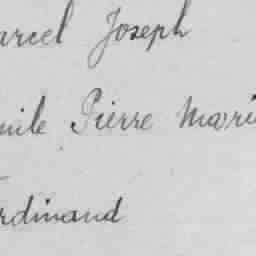 arcel Joseph
mile Pierre Mari
rdinand